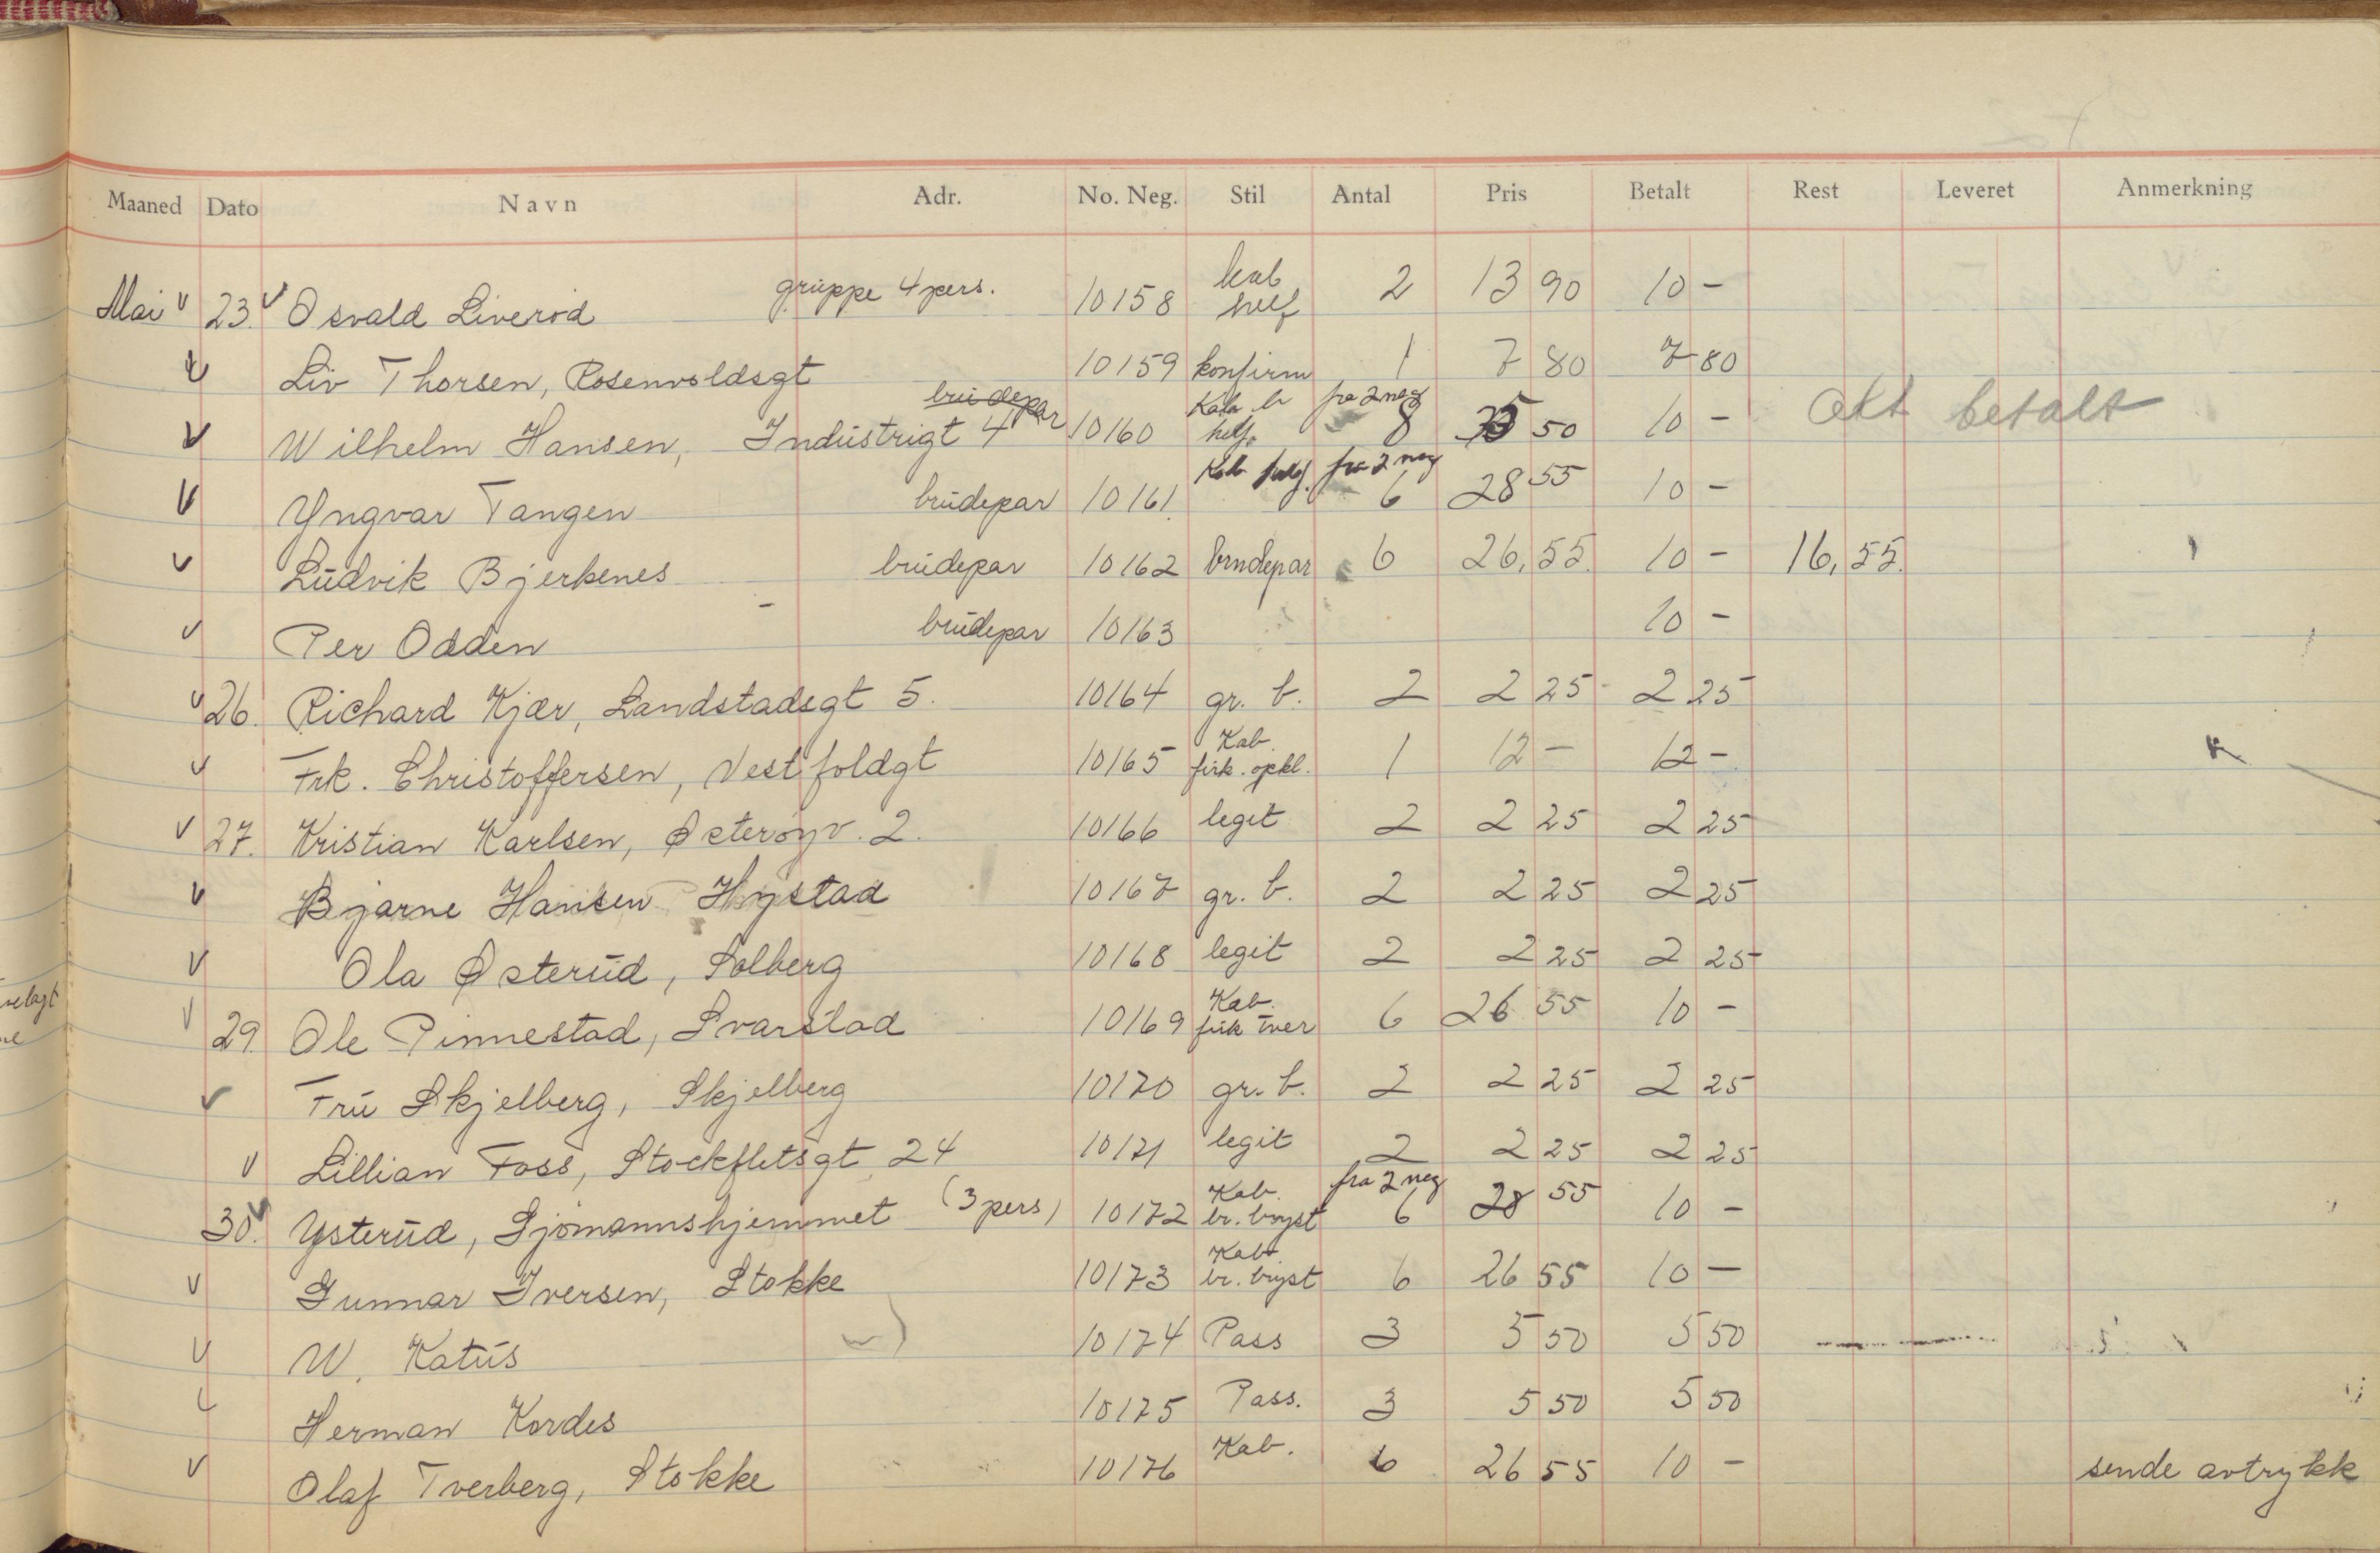 Maaned Dato Navn Adr. No. Neg. Stil Antal Pris Betalt Rest Leveret Anmerkning
Mai v 23. v Osvald Liverød gruppe 4 pers. 10158 kab helf 2 13 90 10 -
v Liv Thorsen, Rosenvoldsgt 10159 konfirm 1 7 80 7 80
brudepar Kab br fra 2 neg
v Wilhelm Hansen, Industrigt 4 10160 helf. 8 50 10 - Alt betalt
Kab helf. fra 2 neg
v Yngvar Tangen brudepar 10161 6 28 55 10 -
v Ludvik Bjerkenes brudepar 10162 brudepar 6 26,55. 10 - 16,55.
v Per Odden brudepar 10163 10 -
v 26. Richard Kjær, Landstadsgt 5. 10164 gr. b. 2 2 25 2 25
Kab.
v Frk. Christoffersen, Vestfoldgt 10165 firk. opkl. 1 12 - 12 -
v 27. Kristian Karlsen, Østerøyv. 2. 10166 legit 2 2 25 2 25
v Bjarne Hansen Hystad 10167 gr. b. 2 2 25 2 25
v Ola Østerud, Solberg 10168 legit 2 2 25 2 25
Kab.
v 29. Ole Pinnestad, Svarstad 10169 firk tver 6 26 55 10 -
v Fru Skjelberg, Skjelberg 10170 gr. b. 2 2 25 2 25
v Lillian Foss, Stockfletsgt 24 10171 legit 2 2 25 2 25
Kab. fra 2 neg
30. v Ysterud, Sjømannshjemmet (3 pers) 10172 br. bryst 6 28 55 10 -
Kab.
v Gunnar Iversen, Stokke 10173 br. bryst 6 26 55 10 -
v W. Katus 10174 Pass 3 5 50 5 50
v Herman Kordes 10175 Pass. 3 5 50 5 50
v Olaf Tverberg, Stokke 10176 Kab. 6 26 55 10 - sende avtrykk